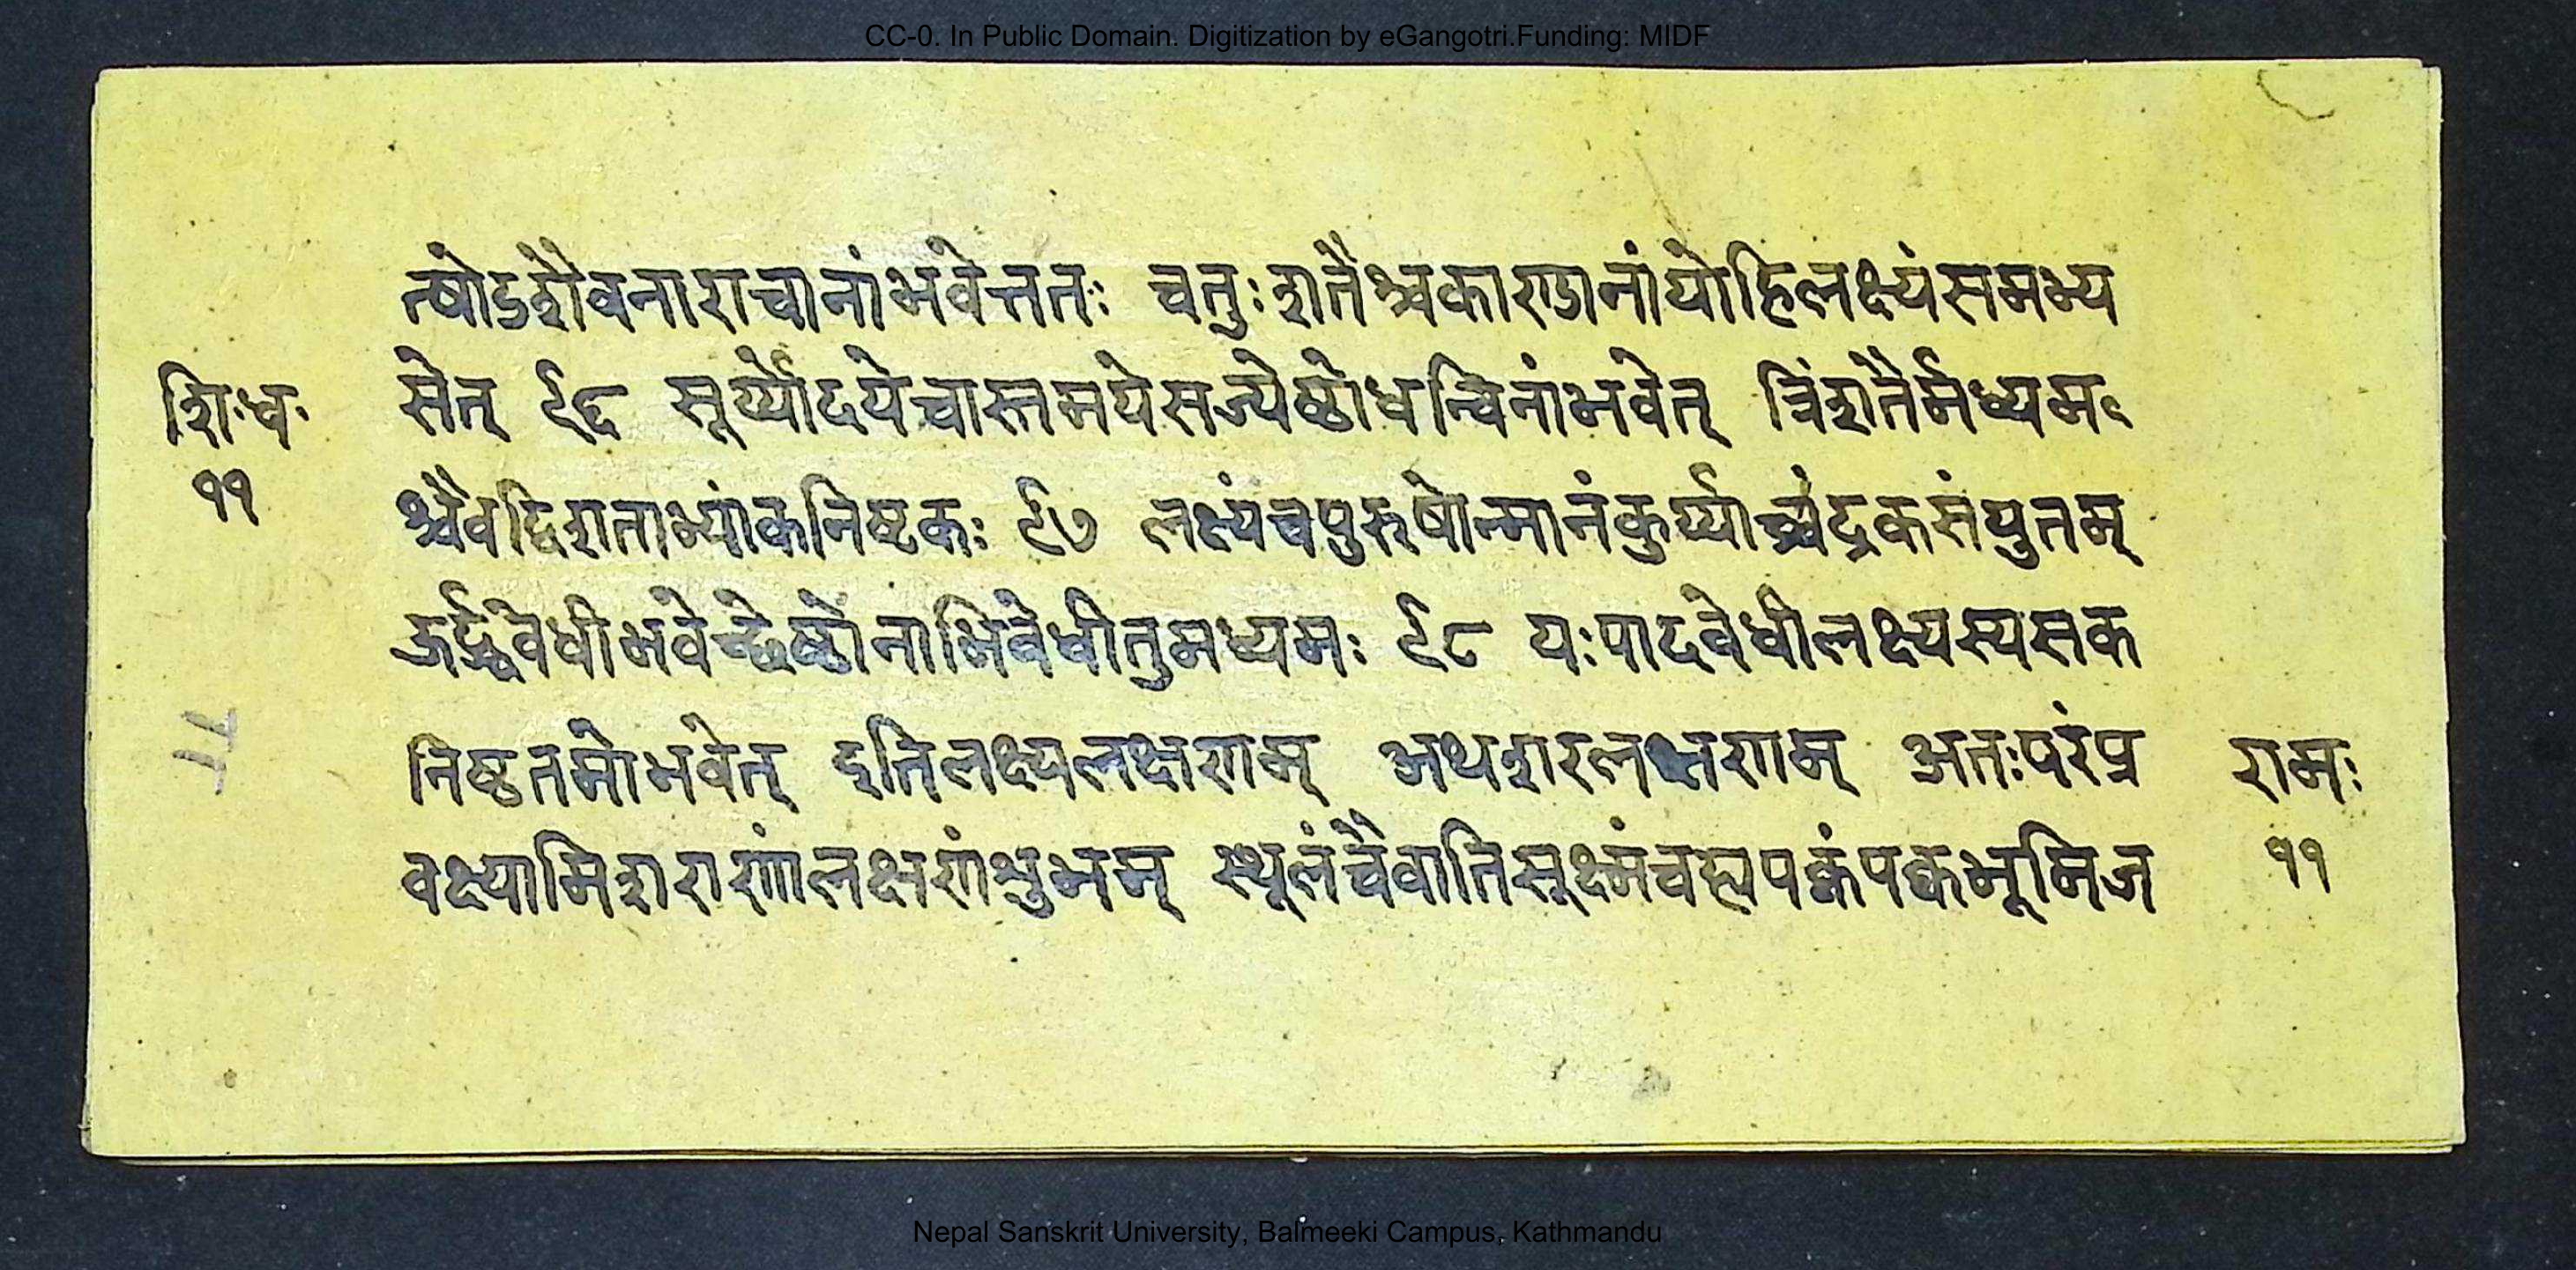 CC-0. In Public Domain. Digitization by eGangotri.Funding: MIDF
त्षोडशैवनाराचानांभवेत्ततः चतुःशतैश्चकाण्डानांयोहिलक्ष्यंसमभ्य
शिःधः सेत् ९६ सूर्य्योदयेचास्तमयेसज्येष्ठोधन्विनांभवेत् त्रिंशतैर्मध्यम
११ श्चैवद्विशताभ्यांकनिष्टकः ९७ लक्ष्यंचपुरुषोन्मानंकुर्य्याच्चंद्रकसंयुतम्
ऊर्द्ध्ववेधीभवेच्छ्रेष्ठोनाभिवेधीतुमध्यमः ९८ यःपादवेधीलक्ष्यस्यसक
निष्ठतमोभवेत् इतिलक्ष्यलक्षणम् अथशरलक्षणम् अतःपरंप्र रामः
वक्ष्यामिशराणांलक्षणंशुभम् स्थूलंचैवातिसूक्ष्मंचह्यपक्वंपक्वभूमिज ११
Nepal Sanskrit University, Balmeeki Campus, Kathmandu